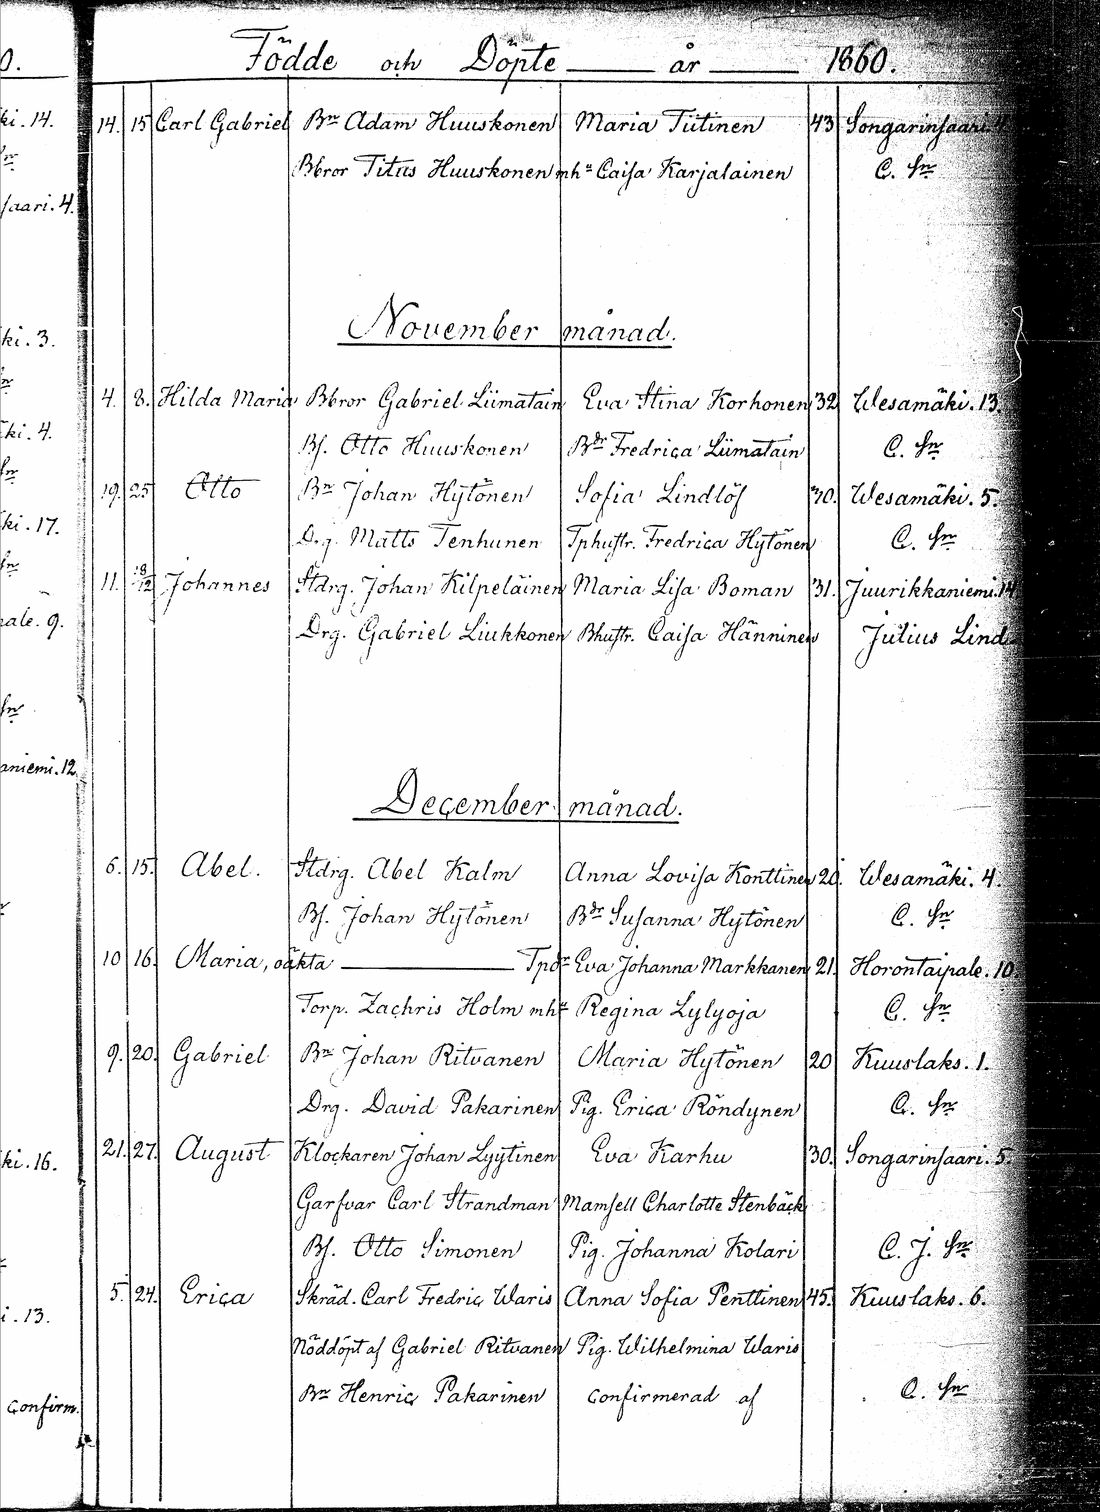 0.
Födde och Döpte år 1860.
ki. 14. 14. 15 Carl Gabriel Bn Adam Huuskonen Maria Tiitinen 43 Songarinsaari. 4.
sn Bbror Titus Huuskonen mha Caisa Karjalainen C. sn
saari. 4.
November månad.
ki. 3.
sn 4. 8. Hilda Maria Bbror Gabriel Liimatain Eva Stina Korhonen 32 Wesamäki. 13.
ki. 4. Bs. Otto Huuskonen Bdr Fredrica Liimatain C. sn
sn 19. 25 Otto Bn Johan Hytönen Sofia Lindlöf 30. Wesamäki. 5.
ki. 17. Drg. Matts Tenhunen Tphustr. Fredrica Hytönen C. sn
sn 11. 18/12 Johannes Stdrg. Johan Kilpeläinen Maria Lisa Boman 31. Juurikkaniemi. 14
pale. 9. Drg. Gabriel Liukkonen Bhustr. Caisa Hänninen Julius Lind
sn
aniemi. 12
December månad.
6. 15. Abel. Stdrg. Abel Kalm Anna Lovisa Konttinen 20. Wesamäki. 4.
Bs. Johan Hytönen Bdr Susanna Hytönen C. sn
10 16. Maria, oäkta Tpdr Eva Johanna Markkanen 21. Horontaipale. 10.
Torp. Zachris Holm mha Regina Lylyoja C. sn
9. 20. Gabriel Bn Johan Ritvanen Maria Hytönen 20 Kuuslaks. 1.
Drg. David Pakarinen Pig. Erica Röndynen C. sn
ki. 16. 21. 27. August Klockaren Johan Lyytinen Eva Karhu 30. Songarinsaari. 5.
Garfvar Carl Strandman Mamsell Charlotte Stenbäck
Bs. Otto Simonen Pig. Johanna Kolari C. J. sn
i. 13. 5. 24. Erica Skräd. Carl Fredric Waris Anna Sofia Penttinen 45. Kuuslaks. 6.
Nöddöpt af Gabriel Ritvanen Pig. Wilhelmina Waris
confirm. Bn Henric Pakarinen confirmerad af C. sn